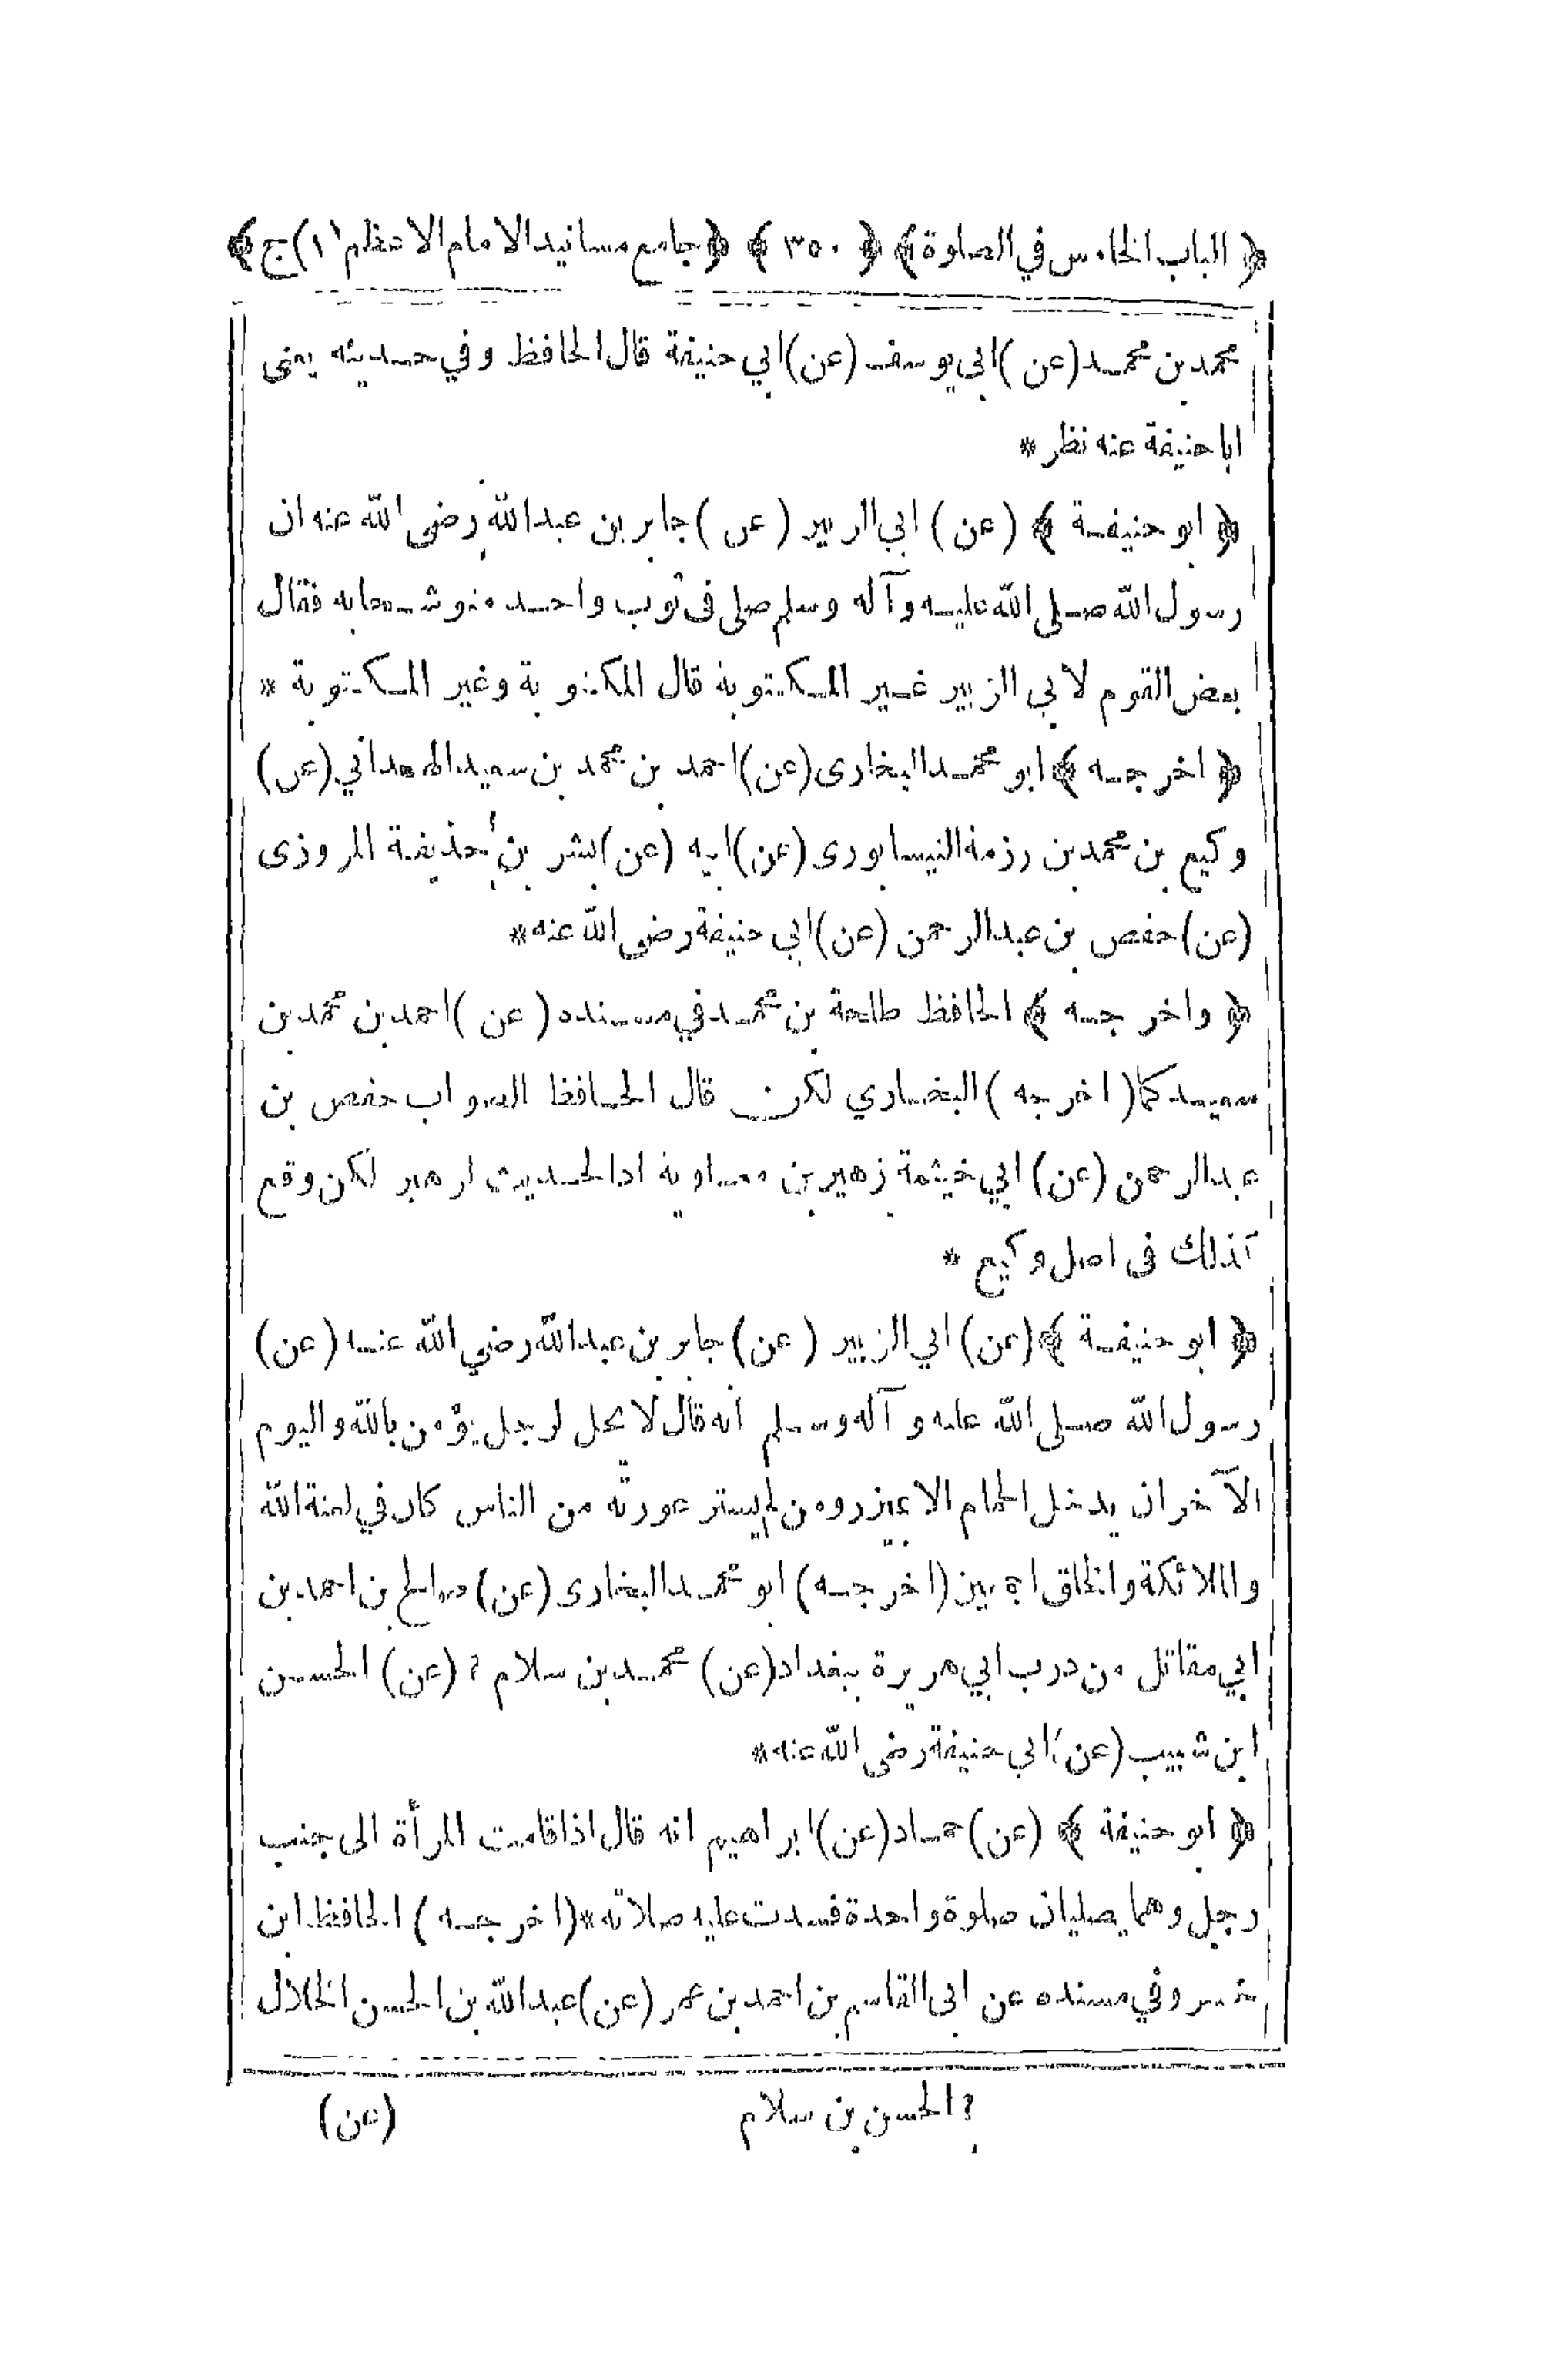 ﴿ الباب الخامس في الصلوة ﴾ ﴿ ٣٥٠ ﴾ ﴿ جامع مسانيد الامام الاعظم (١) ج ﴾
محمد بن محمد (عن) ابى يوسف (عن) ابي حنيفة قال الحافظ وفي حديثه يعنى
ابا حنيفة عنه نظر *
﴿ ابو حنيفة ﴾ (عن) ابي الزبير (عن) جابر بن عبد الله رضى الله عنه ان
رسول الله صلى الله عليه وآله وسلم صلى فى ثوب واحد متوشحا به فقال
بعض القوم لابي الزبير غير المكتوبة قال المكتوبة وغير المكتوبة *
﴿ اخرجه ﴾ ابو محمد البخارى (عن) احمد بن محمد بن سعيد الهمداني (عن)
وكيع بن محمد بن رزمة النيسابورى (عن) ابيه (عن) بشر بن حذيفة المروزى
(عن) حفص بن عبد الرحمن (عن) ابي حنيفة رضى الله عنه *
﴿ واخرجه ﴾ الحافظ طلحة بن محمد في مسنده (عن) احمد بن محمد بن
سعيد كما (اخرجه) البخاري لكن قال الحافظ الصواب حفص بن
عبد الرحمن (عن) ابي خيثمة زهير بن معاوية اذ الحديث لزهير لكن وقع
كذلك فى اصل وكيع *
﴿ ابو حنيفة ﴾ (عن) ابي الزبير (عن) جابر بن عبد الله رضي الله عنه (عن)
رسول الله صلى الله عليه وآله وسلم انه قال لا يحل لرجل يؤمن بالله واليوم
الآخر ان يدخل الحمام الا بمئزر ومن لم يستر عورته من الناس كان في لعنة الله
والملائكة والخلق اجمعين (اخرجه) ابو محمد البخارى (عن) صالح بن احمد بن
ابي مقاتل من درب ابي هريرة ببغداد (عن) محمد بن سلام ? (عن) الحسن
ابن شبيب (عن) ابي حنيفة رضى الله عنه *
﴿ ابو حنيفة ﴾ (عن) حماد (عن) ابراهيم انه قال اذا قامت المرأة الى جنب
رجل وهما يصليان صلوة واحدة فسدت عليه صلاته * (اخرجه) الحافظ ابن
خسرو في مسنده عن ابى القاسم بن احمد بن عمر (عن) عبد الله بن الحسن الخلال
? الحسن بن سلام
(عن)